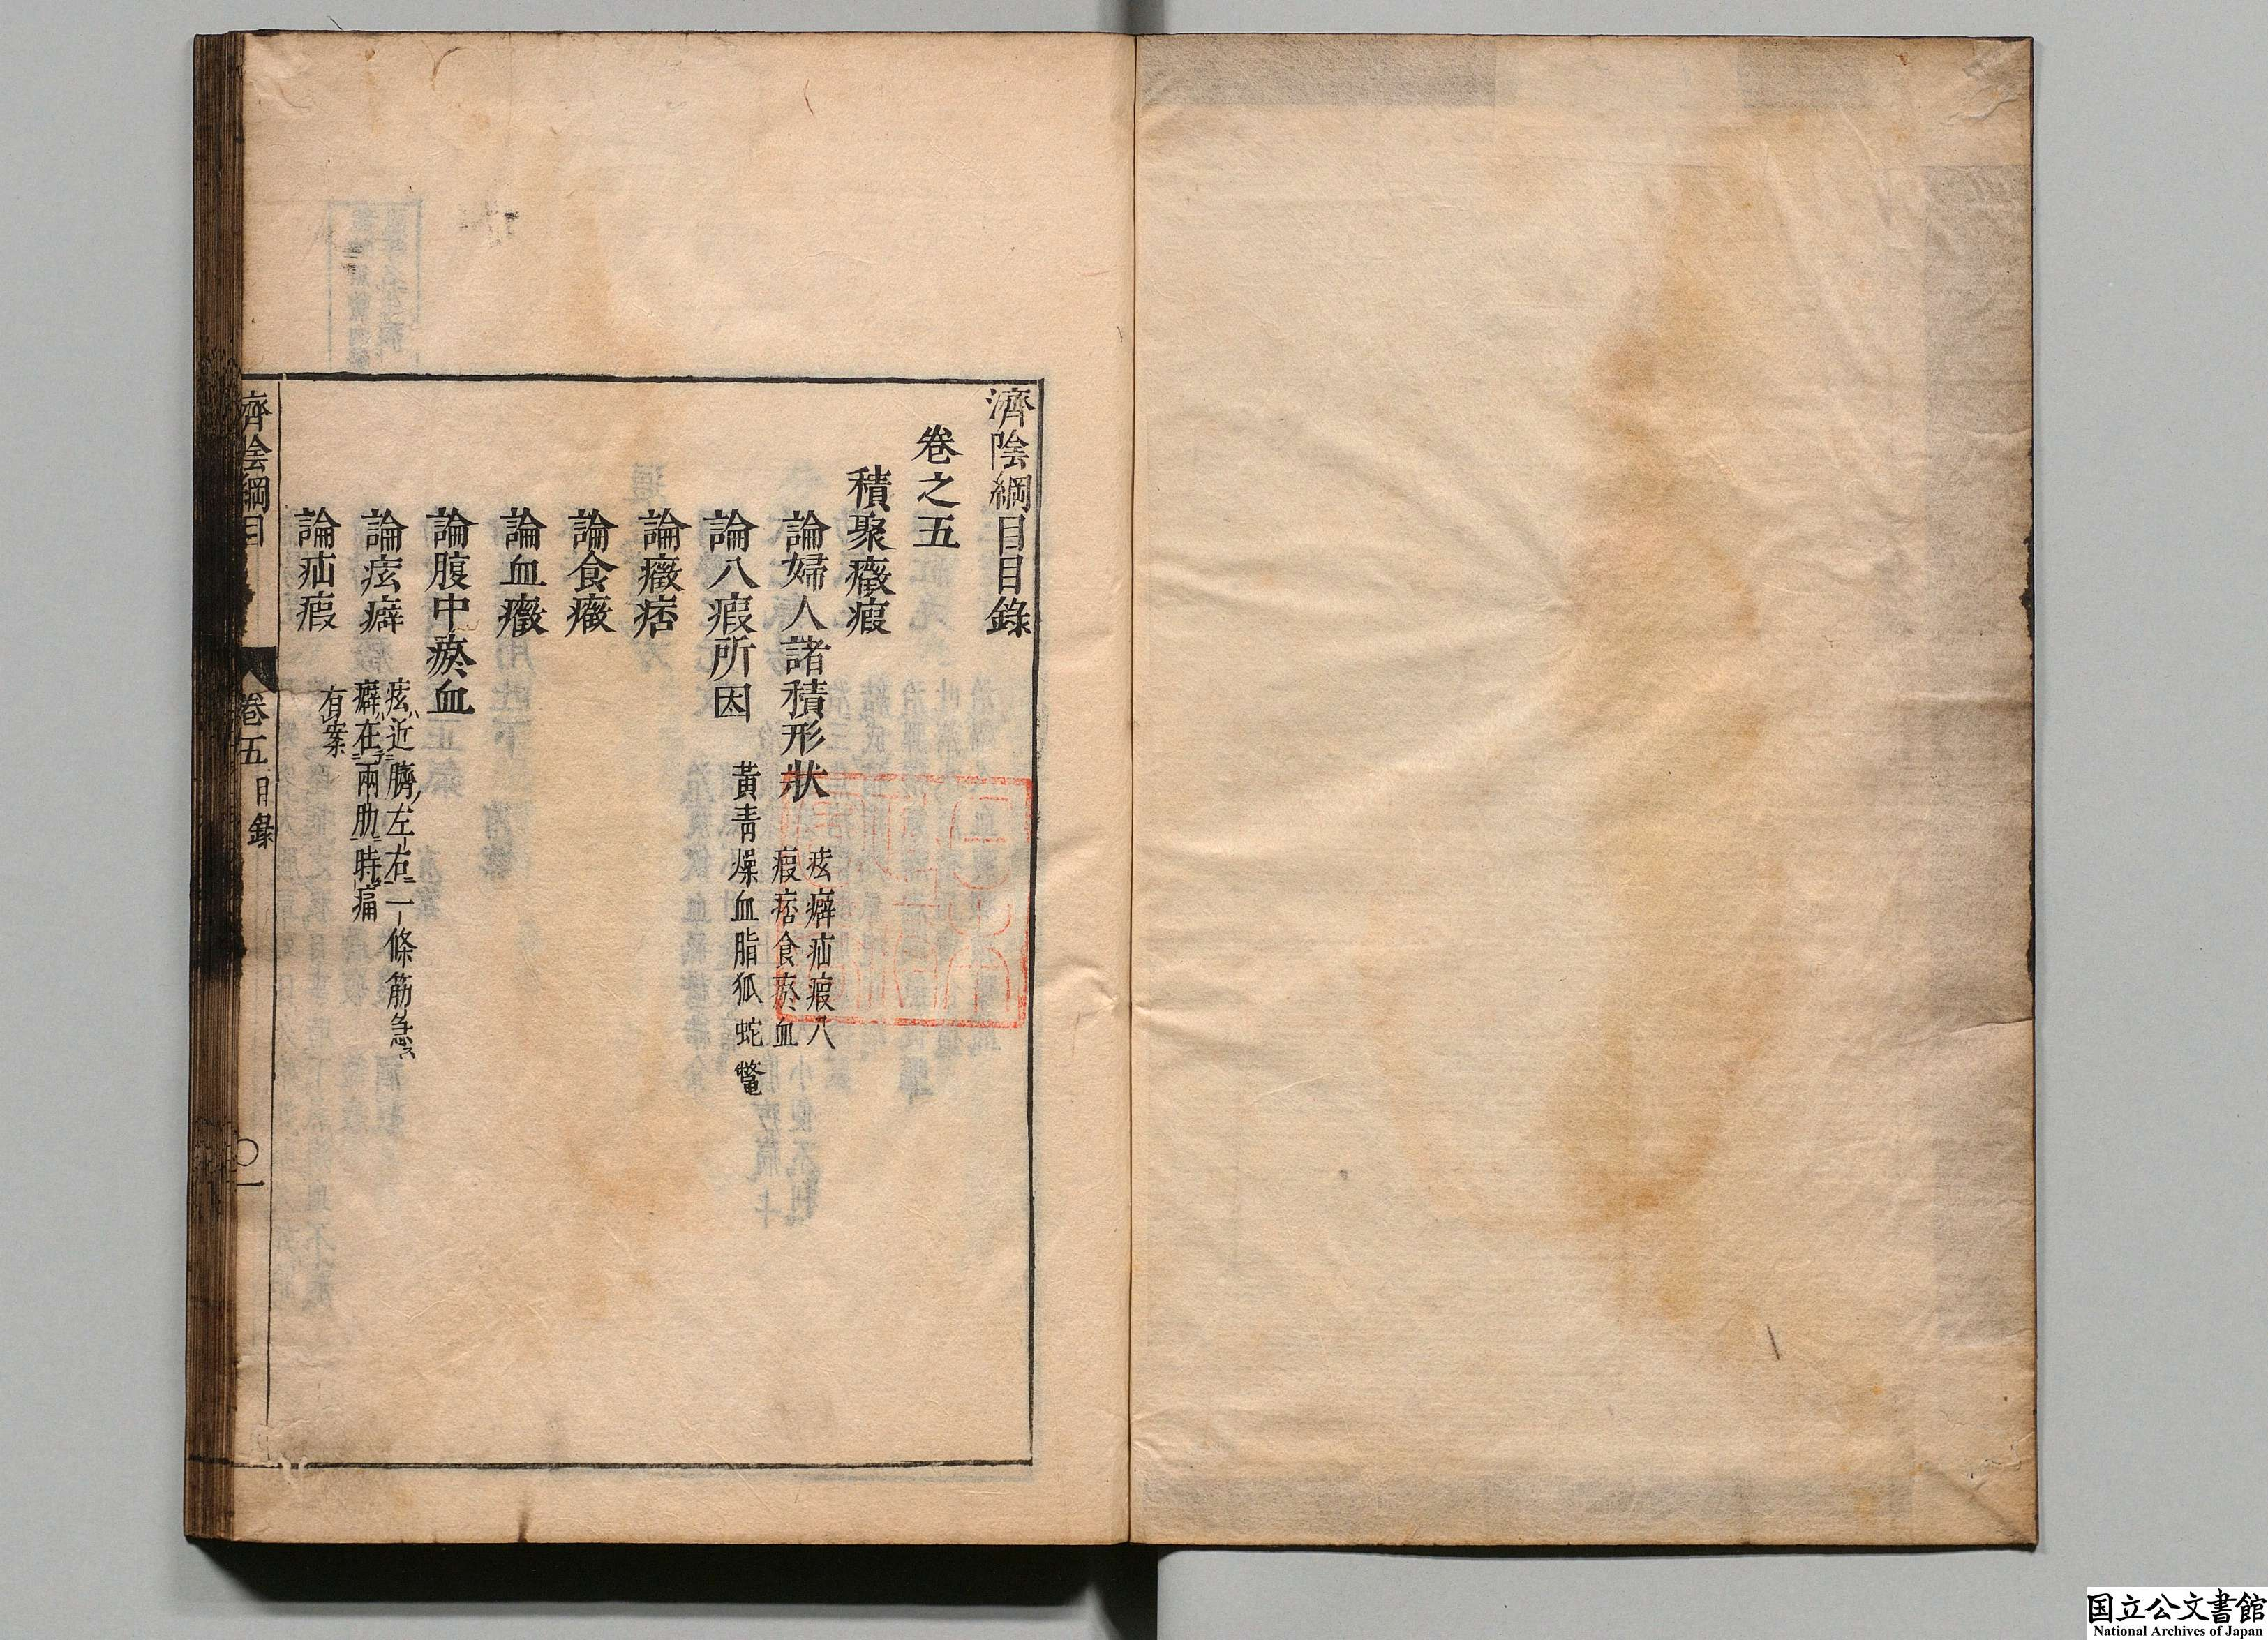 濟陰綱目目錄
卷之五
積聚癥瘕
論婦人諸積形狀
痃癖疝瘕八
瘕痞食瘀血
論八瘕所因
黃青燥血脂狐蛇鱉
論癥痞
論食癥
論血癥
論腹中瘀血
論痃癖
痃近臍左右一條筋急
癖在兩肋時痛
論疝瘕
有案
濟陰綱目
卷五
目錄
一
国立公文書館
National Archives of Japan